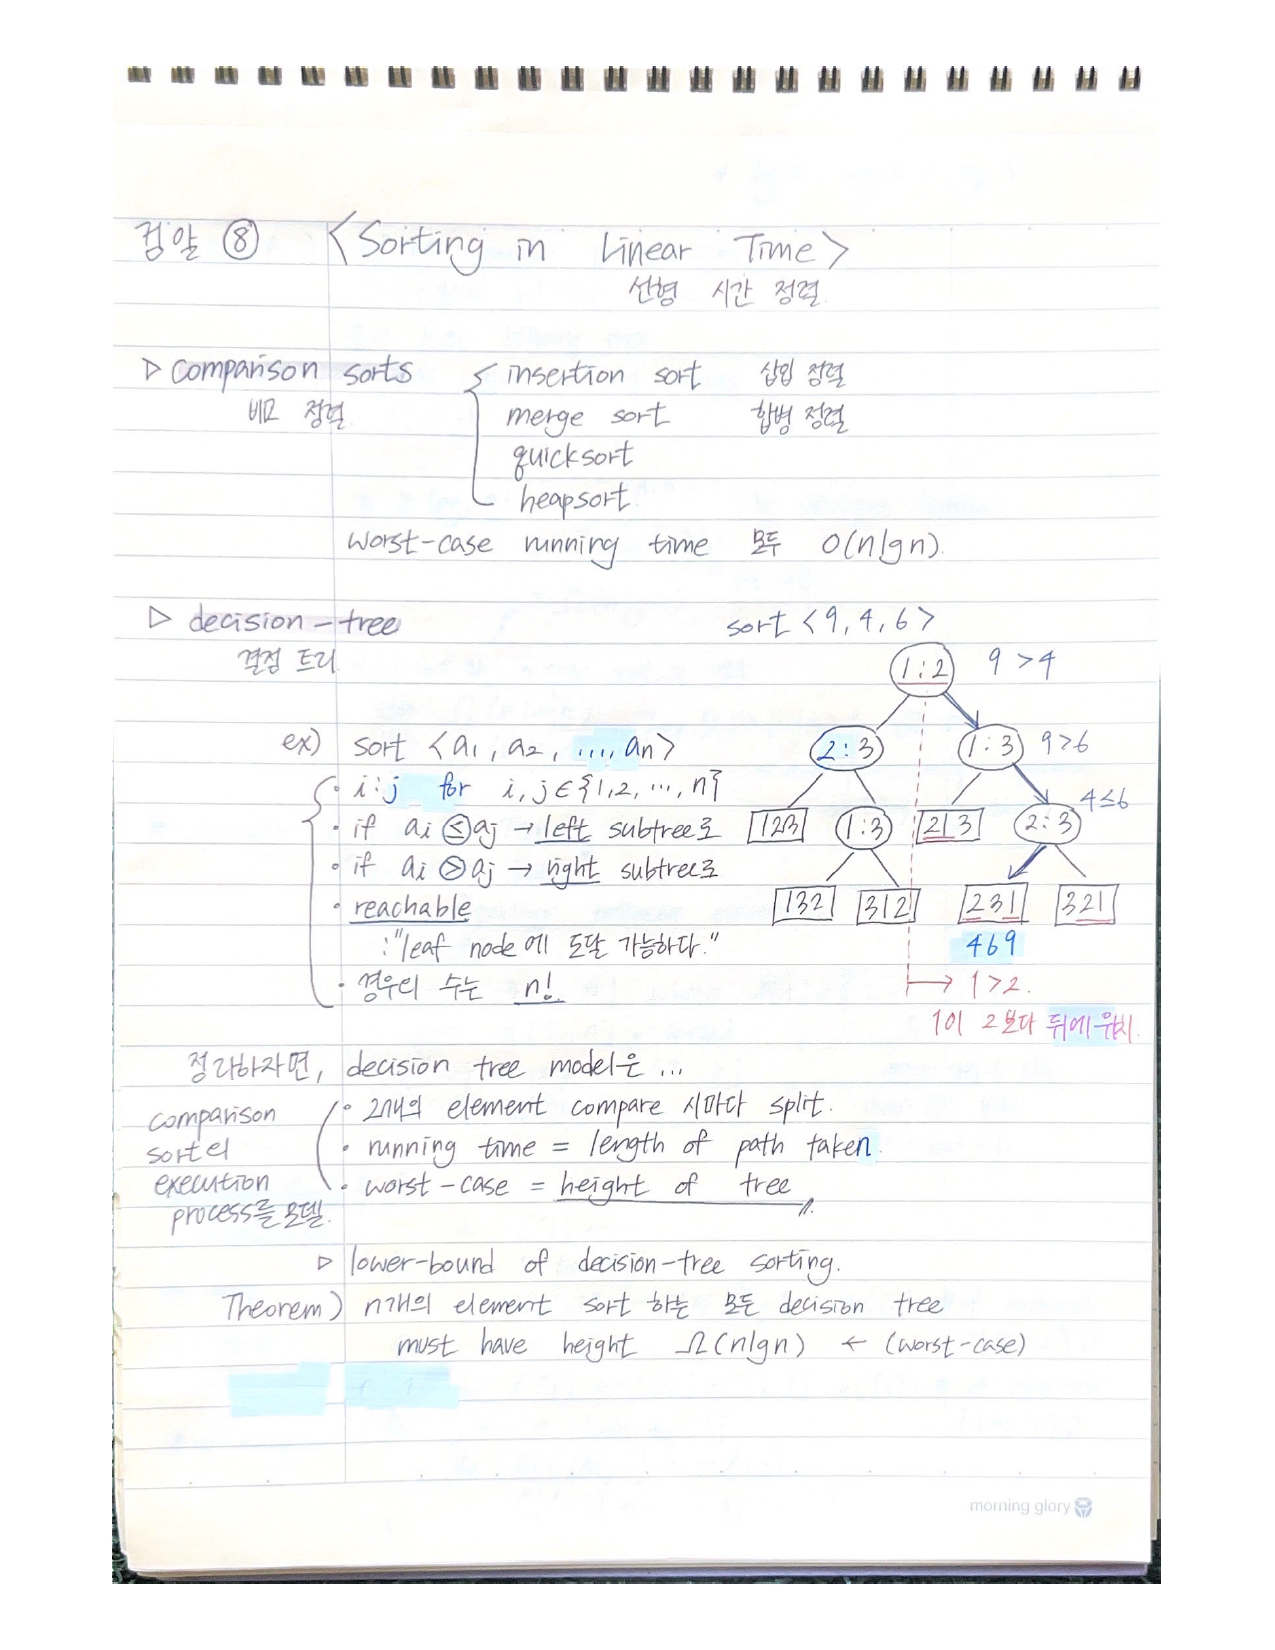 컴알 ⑧ <Sorting in Linear Time>
선형 시간 정렬
▷ comparison sorts { insertion sort 삽입 정렬
비교 정렬 merge sort 합병 정렬
quicksort
heapsort
worst-case running time 모두 O(nlgn).
▷ decision-tree sort <9, 4, 6>
결정 트리
1:2 9>4
ex) sort <a1, a2, ..., an>
2:3 1:3 9>6
· i:j for i, j∈{1,2, ..., n}
4≤6
· if ai ≤ aj → left subtree로
123 1:3 213 2:3
· if ai > aj → right subtree로
· reachable
132 312 231 321
:"leaf node에 도달 가능하다."
469
· 경우의 수는 n!
→ 1>2.
1이 2보다 뒤에 위치.
정리하자면, decision tree model은 ...
comparison sort의 execution process를 모델.
· 2개의 element compare 시마다 split.
· running time = length of path taken
· worst-case = height of tree
▷ lower-bound of decision-tree sorting.
Theorem) n개의 element sort 하는 모든 decision tree
must have height Ω(nlgn) ← (worst-case)
morning glory